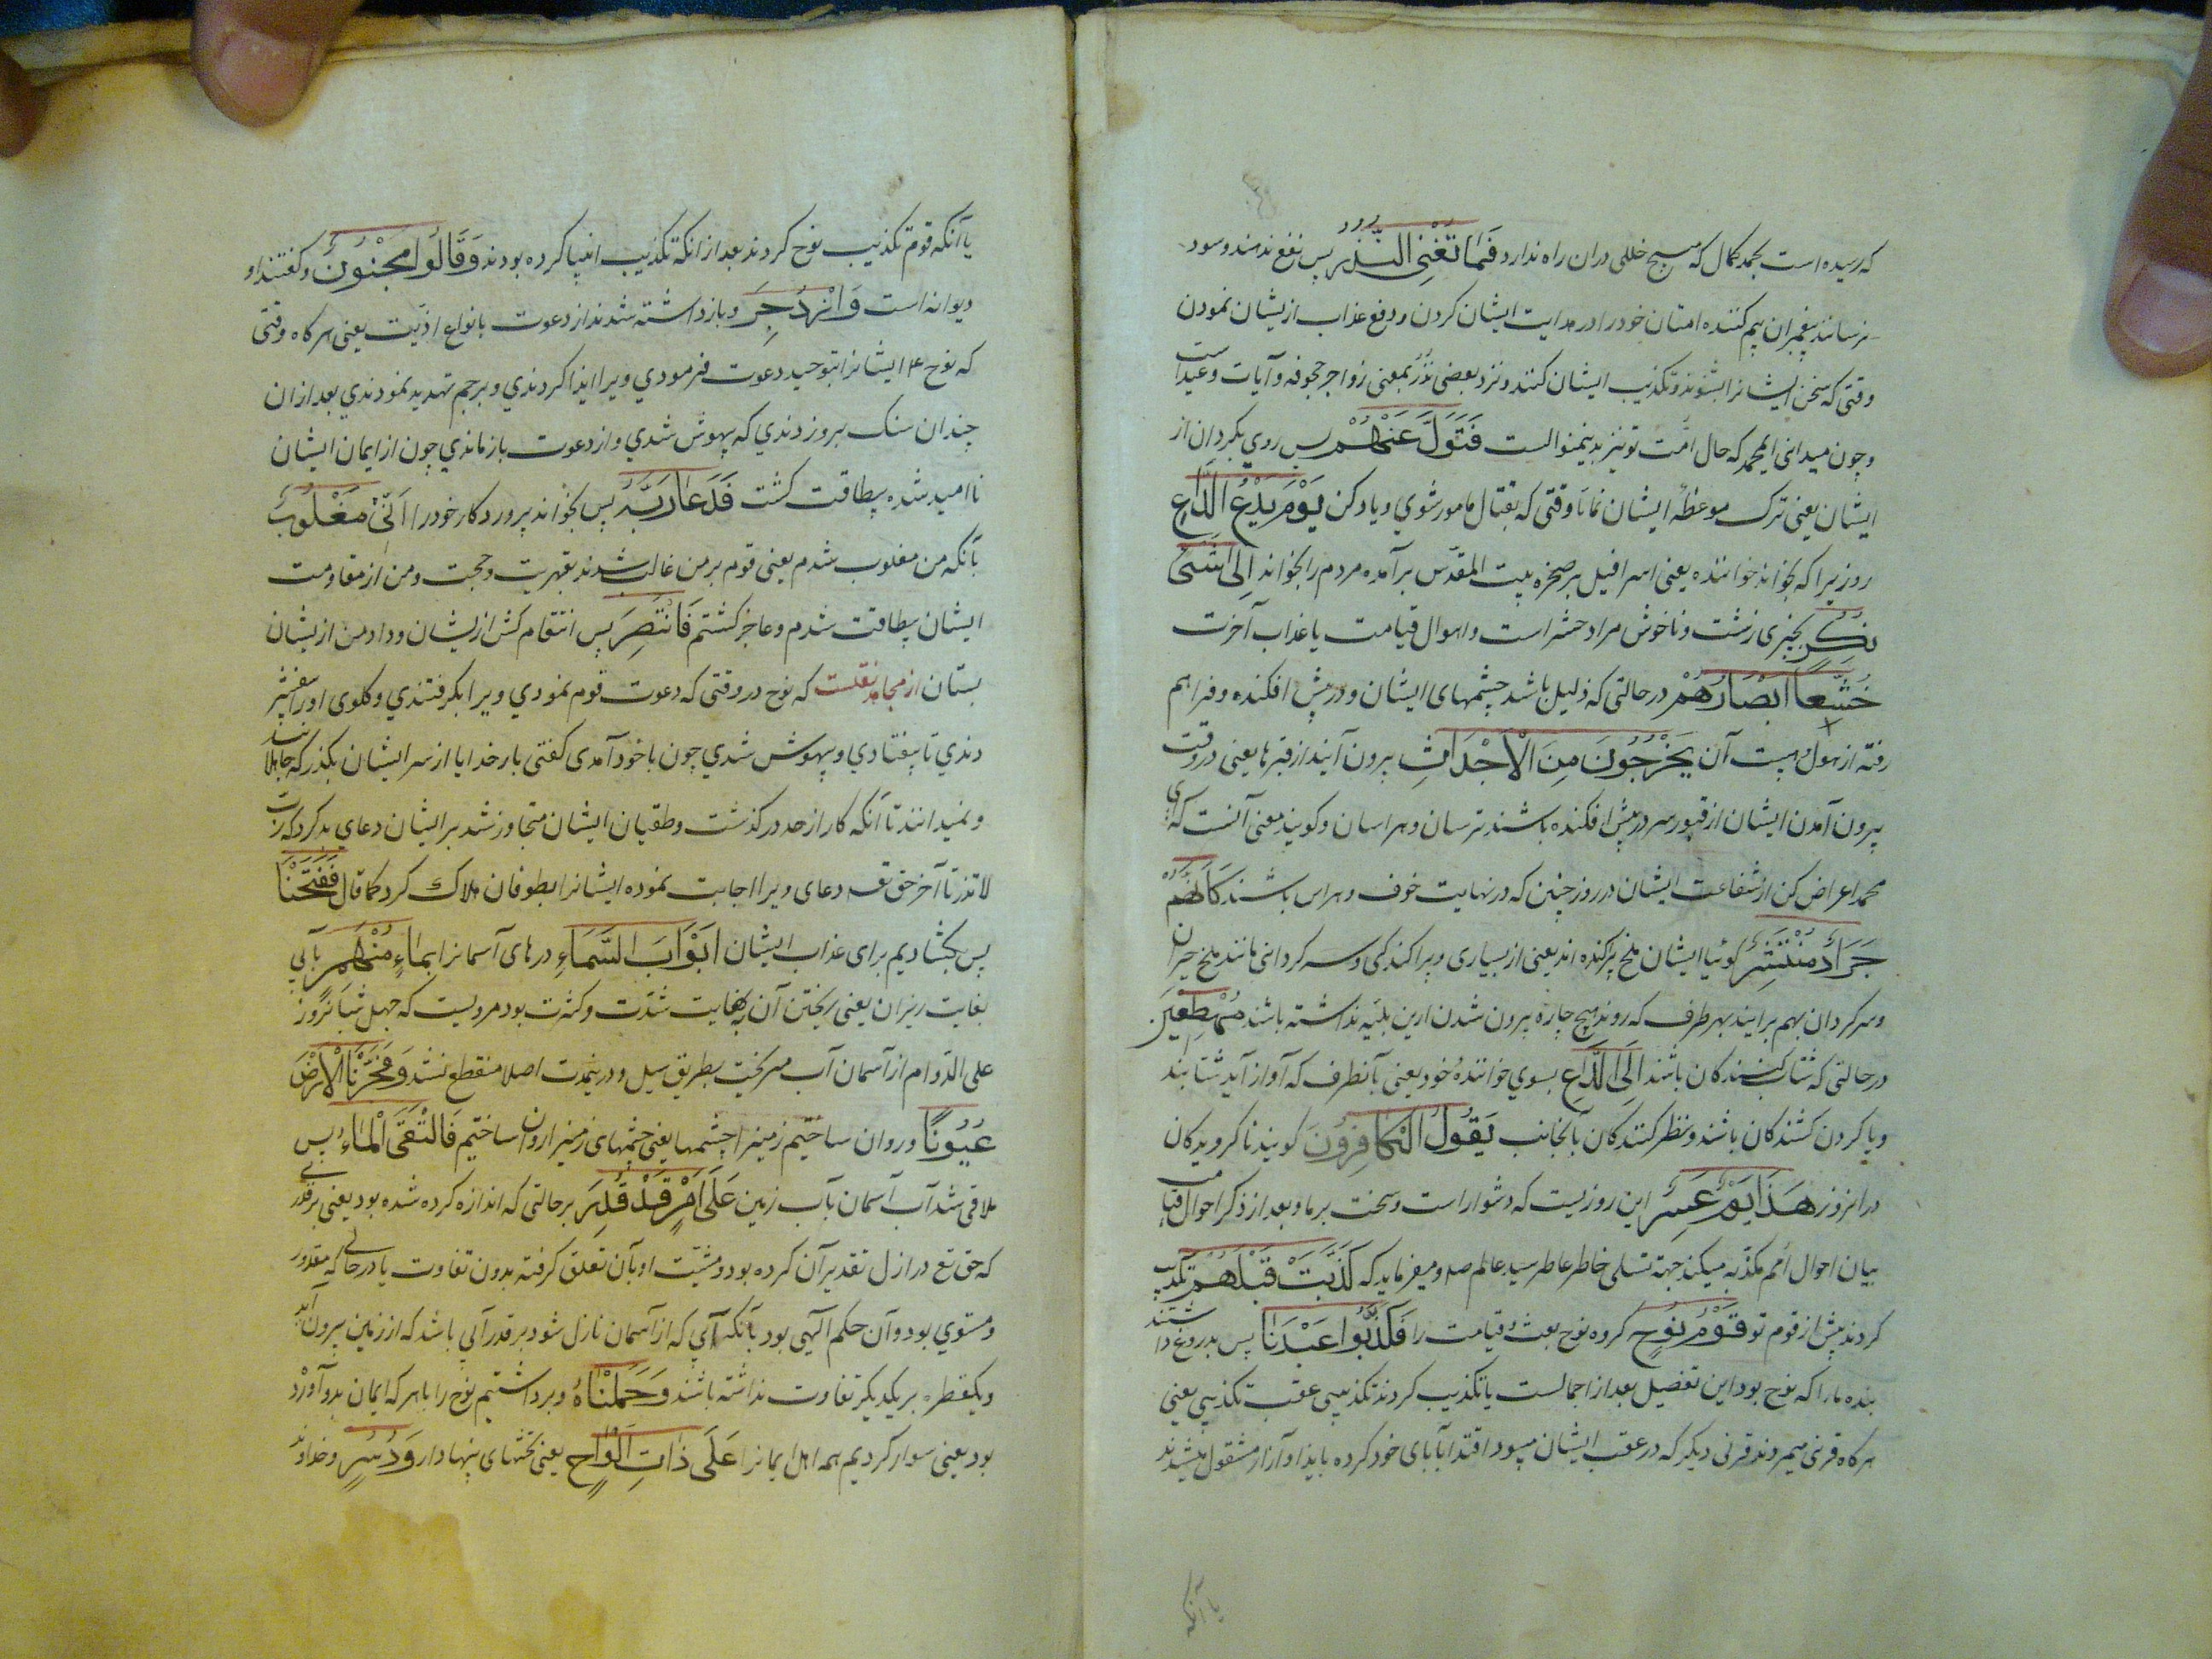 که رسیده است بحد کمال که هیچ خللی دران راه ندارد فَمَا تُغْنِ النُّذُرُ پس نفع ندهند و سود
نرسانند پیغمبران بیم کننده امتان خود را در هدایت ایشان کردن و دفع عذاب ازیشان نمودن
وقتی که سخن ایشانرا نشنوند و تکذیب ایشان کنند و نزد بعضی نذر بمعنی زواجر مخوفه و آیات وعید است
و چون میدانی ایمحمد که حال امت تو نیز بدینمنوالست فَتَوَلَّ عَنْهُمْ پس روی بگردان از
ایشان یعنی ترک موعظهٔ ایشان نما تا وقتی که بقتال مامور شوی و یاد کن یَوْمَ یَدْعُ الدَّاعِ
روزیرا که بخواند خواننده یعنی اسرافیل بر صخره بیت المقدس برآمده مردم را بخواند اِلَی شَیْءٍ
نُکُرٍ بچیزی زشت و ناخوش مراد حشر است و اهوال قیامت یا عذاب آخرت
خُشَّعاً اَبْصَارُهُمْ در حالتی که ذلیل باشد چشمهای ایشان و در پیش افکنده و فراهم
رفته از هول هیبت آن یَخْرُجُونَ مِنَ الْاَجْدَاثِ بیرون آیند از قبرها یعنی در وقت
بیرون آمدن ایشان از قبور سر در پیش افکنده باشند ترسان و هراسان و گویند معنی آنست که ای
محمد اعراض کن از شفاعت ایشان در روز چنین که در نهایت خوف و هراس باشند کَاَنَّهُمْ
جَرَادٌ مُنْتَشِرٌ گوئیا ایشان ملخ پراکنده اند یعنی از بسیاری و پراکندگی و سرگردانی مانند ملخ حیران
و سرگردان بهم برایند بهر طرف که روند هیچ چاره بیرون شدن ازین بلیّه نداشته باشند مُهْطِعِینَ
در حالتی که شتاب کنندگان باشند اِلَی الدَّاعِ بسوی خوانندهٔ خود یعنی بآنطرف که آواز آید شتابند
و یا گردن کشندگان باشند و نظر کنندگان بآنجانب یَقُولُ الْکَافِرُونَ گویند ناگرویدگان
در انروز هَذَا یَوْمٌ عَسِرٌ این روزیست که دشوار است و سخت بر ما و بعد از ذکر احوال قیامت
بیان احوال امم مکذّبه میکند جهة تسلی خاطر عاطر سید عالم صلو میفرماید که کَذَّبَتْ قَبْلَهُمْ تکذیب
کردند پیش از قوم تو قَوْمُ نُوحٍ گروه نوح بعث و قیامت را فَکَذَّبُوا عَبْدَنَا پس بدروغ داشتند
بنده ما را که نوح بود این تفصیل بعد از اجمالست یا تکذیب کردند تکذیبی عقب تکذیبی یعنی
هرگاه قرنی میمردند قرنی دیگر که در عقب ایشان میبود اقتدا بآبای خود کرده بایذا و آزار مشغول میشدند
یا آنکه
یا آنکه قوم تکذیب نوح کردند بعد از انکه تکذیب انبیا کرده بودند وَقَالُوا مَجْنُونٌ و گفتند او
دیوانه است وَازْدُجِرَ و بازداشته شدند از دعوت بانواع اذیّت یعنی هرگاه وقتی
که نوح ع ایشانرا بتوحید دعوت فرمودی ویرا ایذا کردندی و برجم تهدید نمودندی بعد ازان
چندان سنک برو زدندی که بیهوش شدی و از دعوت باز ماندی چون از ایمان ایشان
ناامید شده بیطاقت کشت فَدَعَا رَبَّهُ پس بخواند پروردکار خود را اَنِّی مَغْلُوبٌ
بآنکه من مغلوب شدم یعنی قوم بر من غالب شدند بقهریت و حجت و من از مقاومت
ایشان بیطاقت شدم و عاجز کشتم فَانْتَصِرْ پس انتقام کش ازیشان و داد من ازیشان
بستان از مجاهد نقلست که نوح در وقتی که دعوت قوم نمودی ویرا بکرفتندی و کلوی او را بیفشردندی
تا بیفتادی و بیهوش شدی چون با خود آمدی کفتی بارخدایا از سر ایشان بکذر که جاهلانند
و نمیدانند تا آنکه کار از حد در کذشت و طغیان ایشان متجاوز شد بر ایشان دعای بد کرد که رب
لا تذر تا آخر حق تعـ دعای ویرا اجابت نموده ایشانرا بطوفان هلاک کرد کما قال فَفَتَحْنَا
پس بکشادیم برای عذاب ایشان اَبْوَابَ السَّمَاءِ درهای آسمانرا بِمَاءٍ مُنْهَمِرٍ بآبی
بغایت ریزان یعنی ریختن آن بغایت شدّت و کثرت بود مرویست که چهل شبانروز
علی الدّوام از آسمان آب میریخت بطریق سیل و درینمدت اصلا منقطع نشد وَفَجَّرْنَا الْاَرْضَ
عُیُونًا و روان ساختیم زمینرا چشمها یعنی چشمهای زمینرا روان ساختیم فَالْتَقَی الْمَاءُ پس
ملاقی شد آب آسمان بآب زمین عَلَی اَمْرٍ قَدْ قُدِرَ بر حالتی که اندازه کرده شده بود یعنی بر قدری
که حق تع در ازل تقدیر آن کرده بود و مشیّت او بآن تعلق کرفته بدون تفاوت یا در حالی که مقدور
و مستوی بود و آن حکم الهی بود بآنکه آبی که از آسمان نازل شود بر قدر آبی باشد که از زمین بیرون آید
و یکقطره بر یکدیکر تفاوت نداشته باشند وَحَمَلْنَاهُ و برداشتیم نوح را با هر که ایمان بدو آورده
بود یعنی سوار کردیم همه اهل ایمانرا عَلَی ذَاتِ اَلْوَاحٍ یعنی تختهای پنهادار وَدُسُرٍ و خداوند